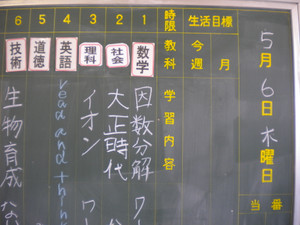 5月6日木曜日
当番
生活目標
今週
月
時限
教科
学習内容
1
数学
因数分解 ワー
2
社会
大正時代
3
理科
イオン ワー
4
英語
read and thin
5
道徳
6
技術
生物育成 な